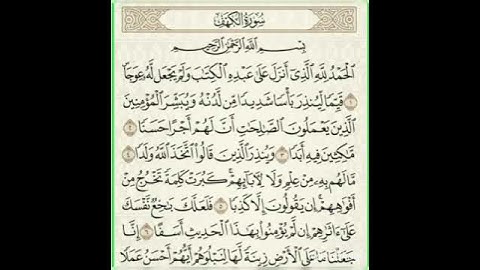 سُورَةُ الكَهْفِ
بِسْمِ اللَّهِ الرَّحْمَٰنِ الرَّحِيمِ
الْحَمْدُ لِلَّهِ الَّذِي أَنزَلَ عَلَىٰ عَبْدِهِ الْكِتَٰبَ وَلَمْ يَجْعَل لَّهُ عِوَجَا
١ قَيِّمًا لِّيُنذِرَ بَأْسًا شَدِيدًا مِّن لَّدُنْهُ وَيُبَشِّرَ الْمُؤْمِنِينَ
الَّذِينَ يَعْمَلُونَ الصَّٰلِحَٰتِ أَنَّ لَهُمْ أَجْرًا حَسَنًا ٢
مَّٰكِثِينَ فِيهِ أَبَدًا ٣ وَيُنذِرَ الَّذِينَ قَالُوا اتَّخَذَ اللَّهُ وَلَدًا ٤
مَّا لَهُم بِهِ مِنْ عِلْمٍ وَلَا لِآبَائِهِمْ كَبُرَتْ كَلِمَةً تَخْرُجُ مِنْ
أَفْوَٰهِهِمْ إِن يَقُولُونَ إِلَّا كَذِبًا ٥ فَلَعَلَّكَ بَٰخِعٌ نَّفْسَكَ
عَلَىٰ ءَاثَٰرِهِمْ إِن لَّمْ يُؤْمِنُوا بِهَٰذَا الْحَدِيثِ أَسَفًا ٦ إِنَّا
جَعَلْنَا مَا عَلَى الْأَرْضِ زِينَةً لَّهَا لِنَبْلُوَهُمْ أَيُّهُمْ أَحْسَنُ عَمَلًا